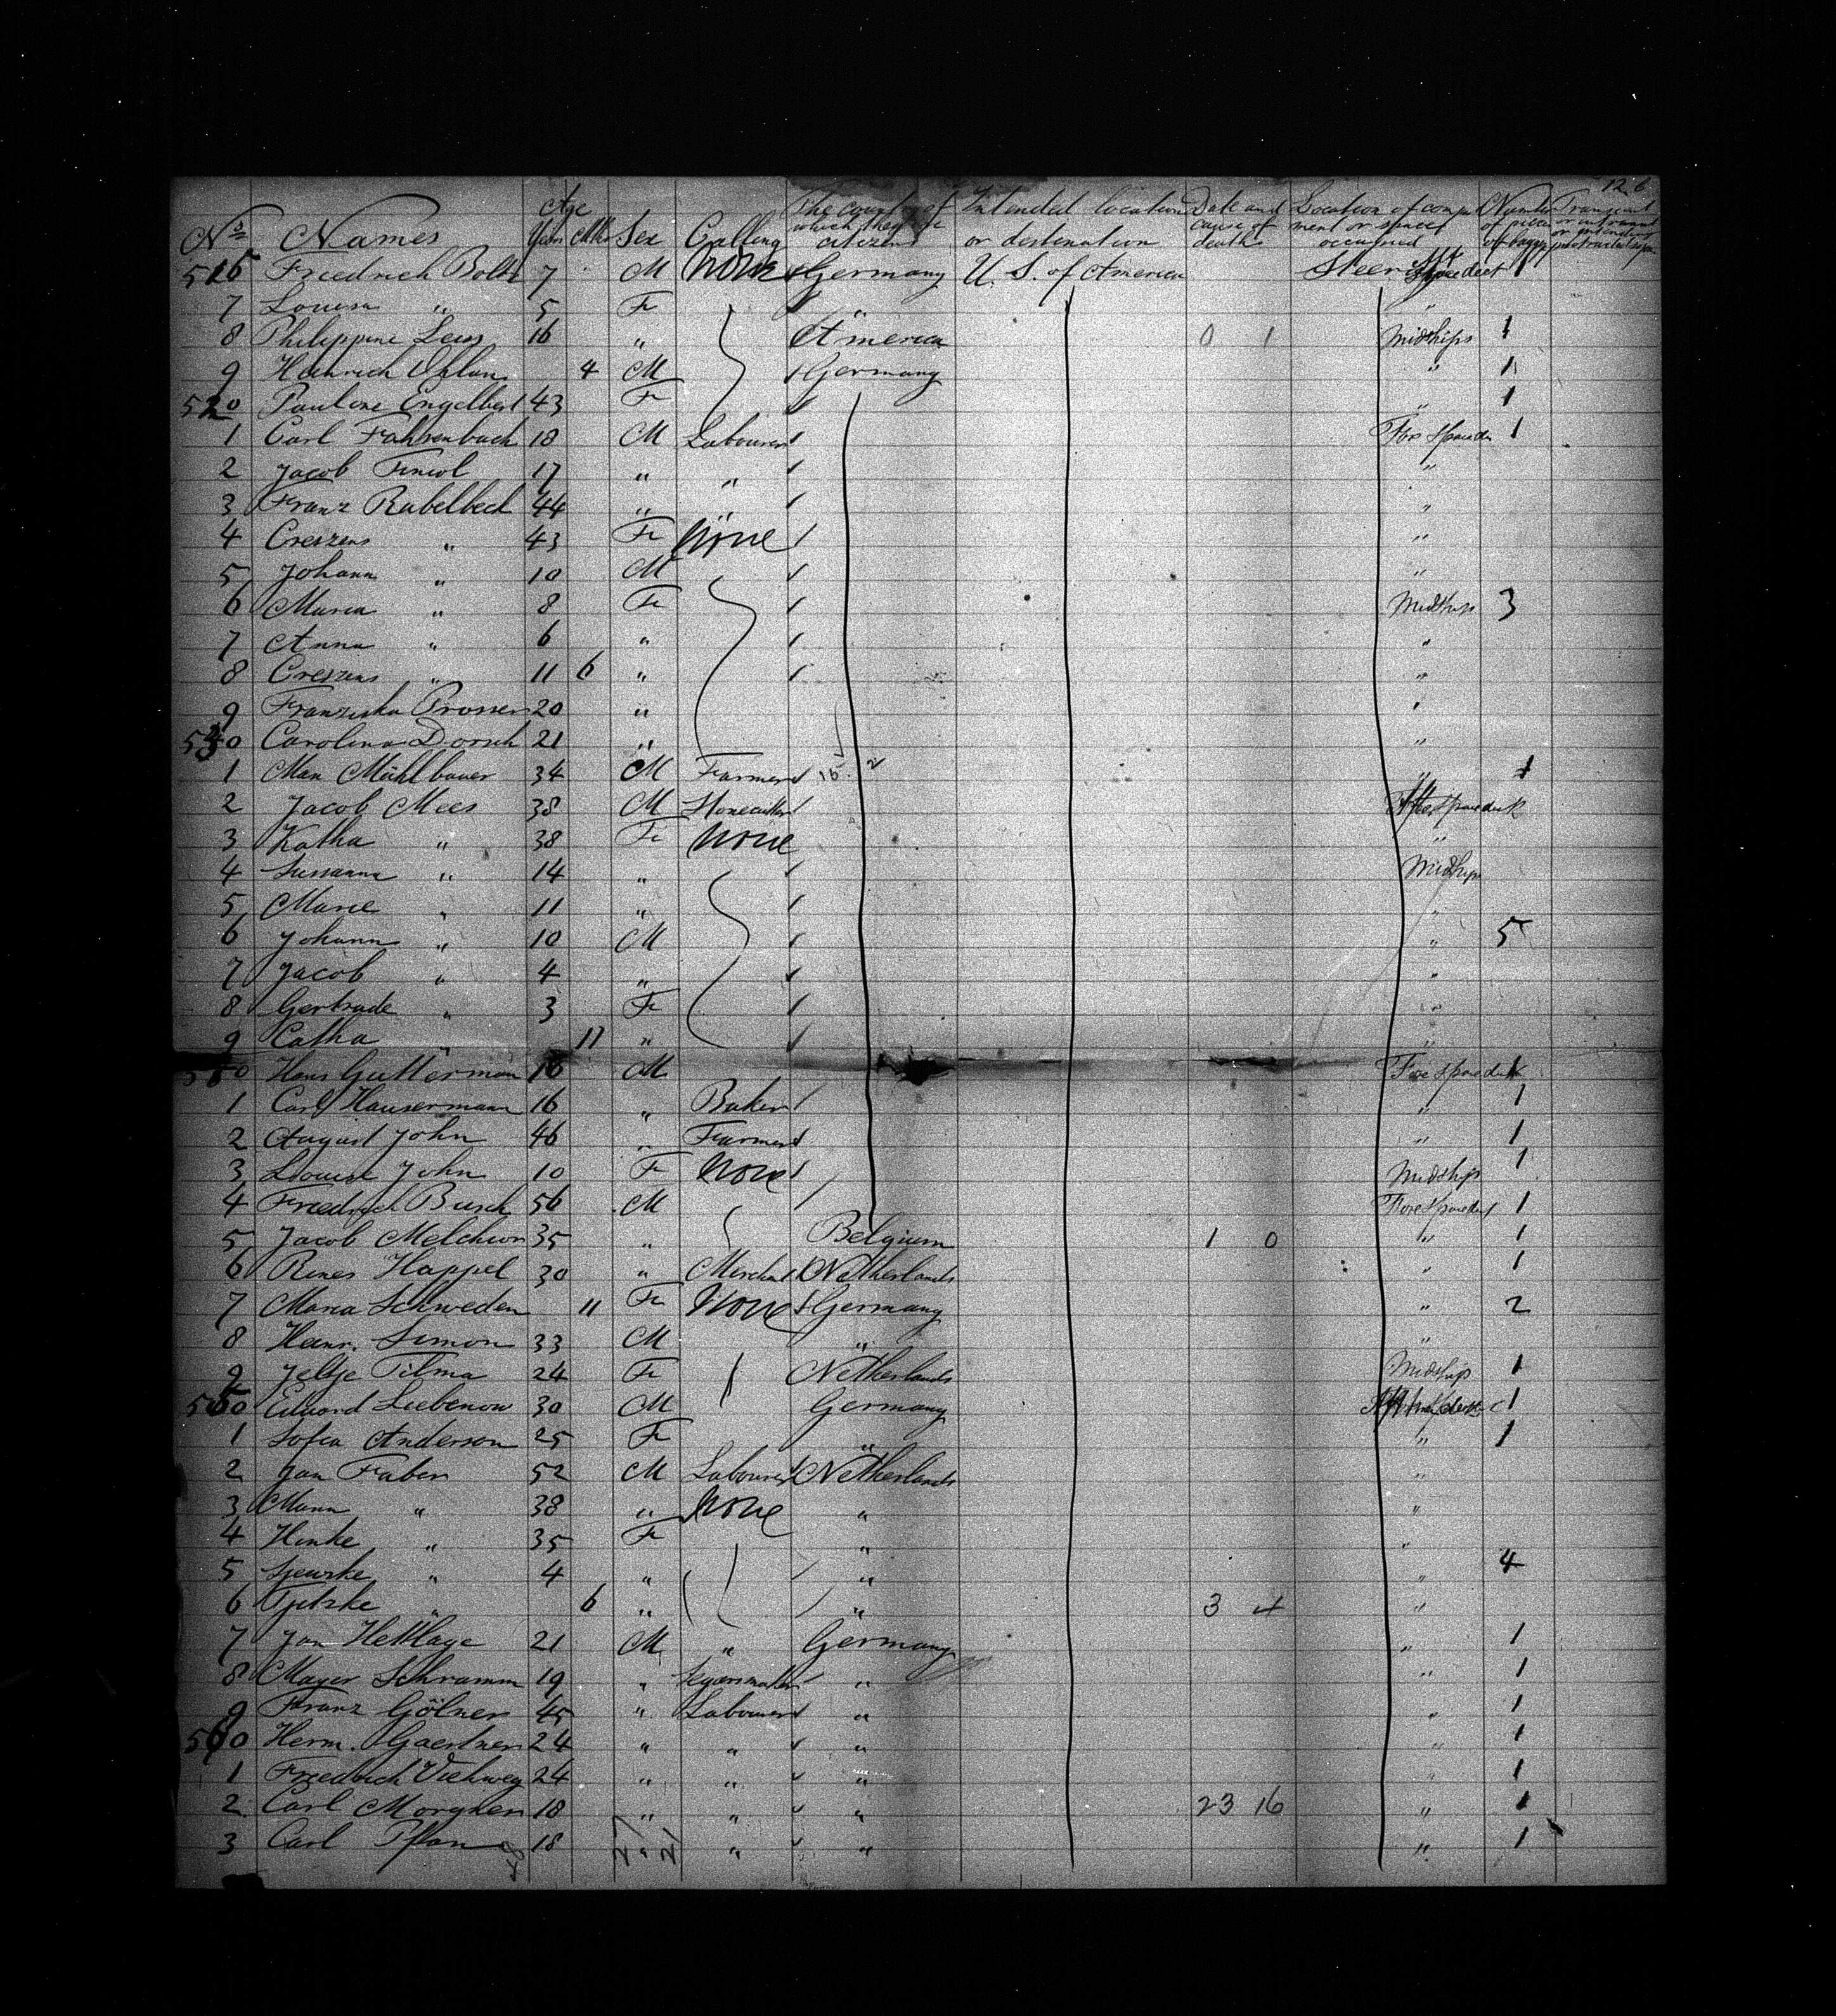 126
Nos Names Age Years Mths Sex Calling The country of which they are citizens Intended location or destination Date and cause of death Location of compartment or space occupied Number of pieces of baggage Transient
516 Friedrich 7 M None Germany U. S. of America Steerage 1
7 Louisa " 5 Fe "
8 Philippine 16 " America 0 1 Midships 1
9 Heinrich 4 M Germany " 1
520 Pauline Engelbert 43 Fe " 1
1 Carl Fahrenbach 18 M Labourer Fore 1
2 Jacob 17 " " "
3 Franz Rabelbeck 44 " " "
4 Creszens " 43 Fe None "
5 Johann " 10 M "
6 Maria " 8 Fe Midships 3
7 Anna " 6 " "
8 Creszens " 11 6 " "
9 Franziska Prosser 20 " "
530 Carolina Dorsch 21 " "
1 Max Mühlbauer 34 M Farmer 15 2 " 1
2 Jacob Mees 38 M Stonecutter
3 Katha " 38 Fe None "
4 Susanna " 14 " Midships
5 Marie " 11 " "
6 Johann " 10 M " 5
7 Jacob " 4 " "
8 Gertrude " 3 Fe "
9 Catha " 11 " "
540 Hans Gutterman 16 M Fore 1
1 Carl Hausermann 16 " Baker " 1
2 August John 46 " Farmer " 1
3 Louise John 10 Fe None Midships 1
4 Friedrich Busch 56 M Fore 1
5 Jacob Melchior 35 " Belgium 1 0 " 1
6 Rines Happel 30 " Merchant Netherlands " 1
7 Maria Schweden 11 Fe None Germany " 2
8 Heinr. Simon 33 M " "
9 Jeltje Tilma 24 Fe Netherlands Midships 1
550 Eduard Liebenow 30 M Germany 1
1 Sofia Anderson 25 Fe " " 1
2 Jan Faber 52 M Labourer Netherlands "
3 " 38 " None " "
4 Hinke " 35 Fe " "
5 " 4 " " " 4
6 Tjitske " 6 " " 3 4 "
7 Jan 21 M " Germany " 1
8 Mayer Schramm 19 " " " 1
9 Franz Gölner 45 " Labourer " " 1
560 Herm. Gaertner 24 " " " " 1
1 Friedrich Viehweg 24 " " " 1
2 Carl Morgner 18 " " " 23 16 " 1
3 Carl 18 " " " " 1
48 27 21